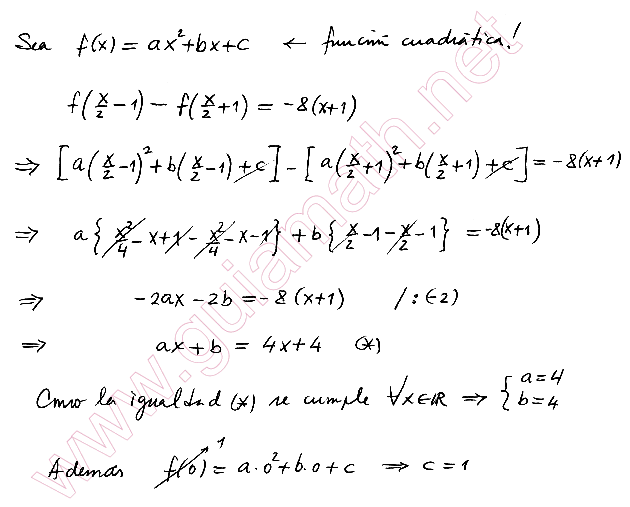 Sea f(x) = ax²+bx+c ← función cuadrática!
f(x/2 −1) − f(x/2 +1) = −8(x+1)
⇒ [a(x/2 −1)²+b(x/2 −1)+c] − [a(x/2 +1)²+b(x/2 +1)+c] = −8(x+1)
⇒ a{x²/4 − x+1 − x²/4 − x−1} + b{x/2 −1 − x/2 −1} = −8(x+1)
⇒ −2ax −2b = −8(x+1) /:(−2)
⇒ ax+b = 4x+4 (*)
Como la igualdad (*) se cumple ∀x∈ℝ ⇒ { a=4 b=4
Ademas f(0) 1 = a·0²+b·0+c ⇒ c=1
www.guiamath.net